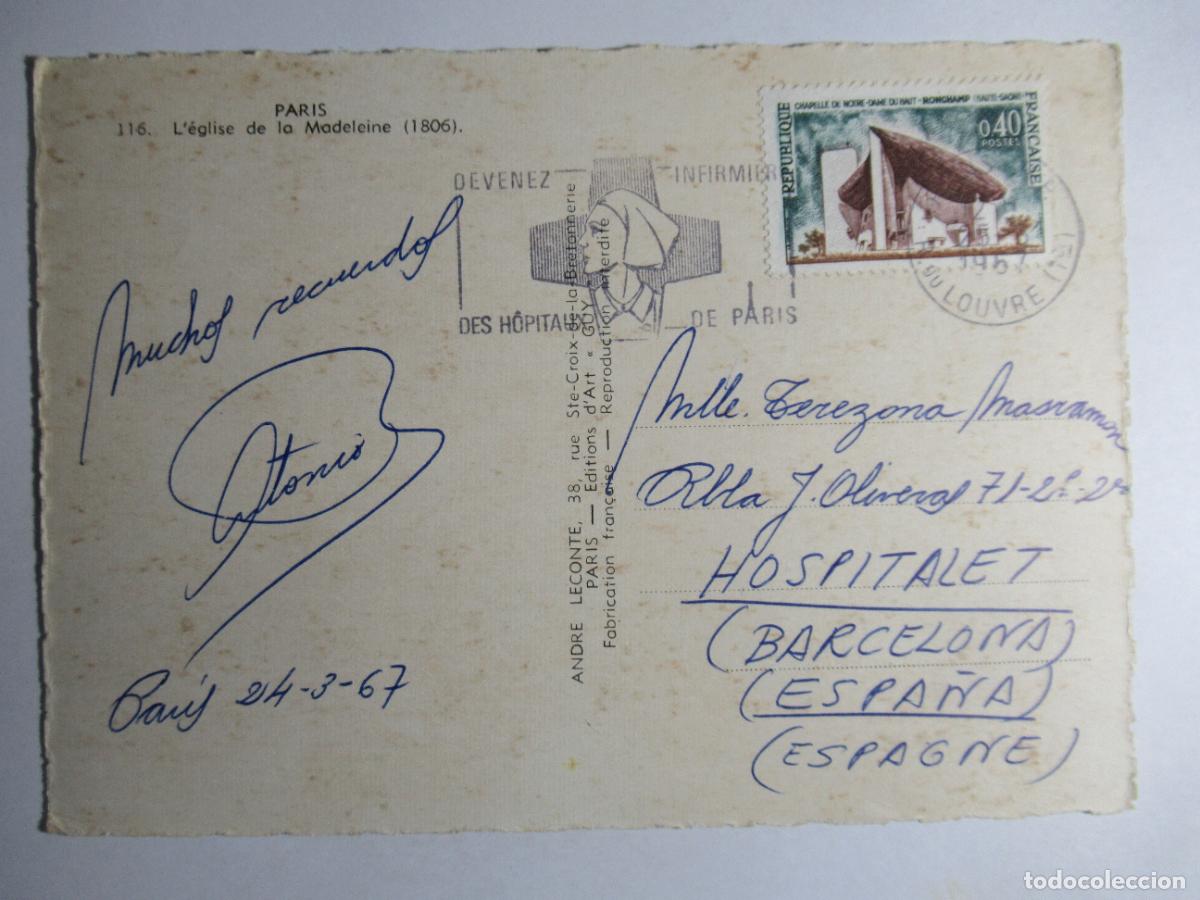 PARIS
116. L'église de la Madeleine (1806).
Muchos recuerdos
Antonio
París 24-3-67
ANDRE LECONTE, 38, rue Ste-Croix-de-la-Bretonnerie
PARIS — Editions d'Art « GUY »
Fabrication française — Reproduction interdite
DEVENEZ INFIRMIER
DES HÔPITAUX DE PARIS
RÉPUBLIQUE FRANÇAISE
CHAPELLE DE NOTRE-DAME DU HAUT - RONCHAMP (HAUTE-SAÔNE)
0,40
POSTES
1967
DU LOUVRE (1er)
Mlle. Terezona Masramon
Rbla J. Oliveras 71-2º-2ª
HOSPITALET
(BARCELONA)
(ESPAÑA)
(ESPAGNE)
todocoleccion